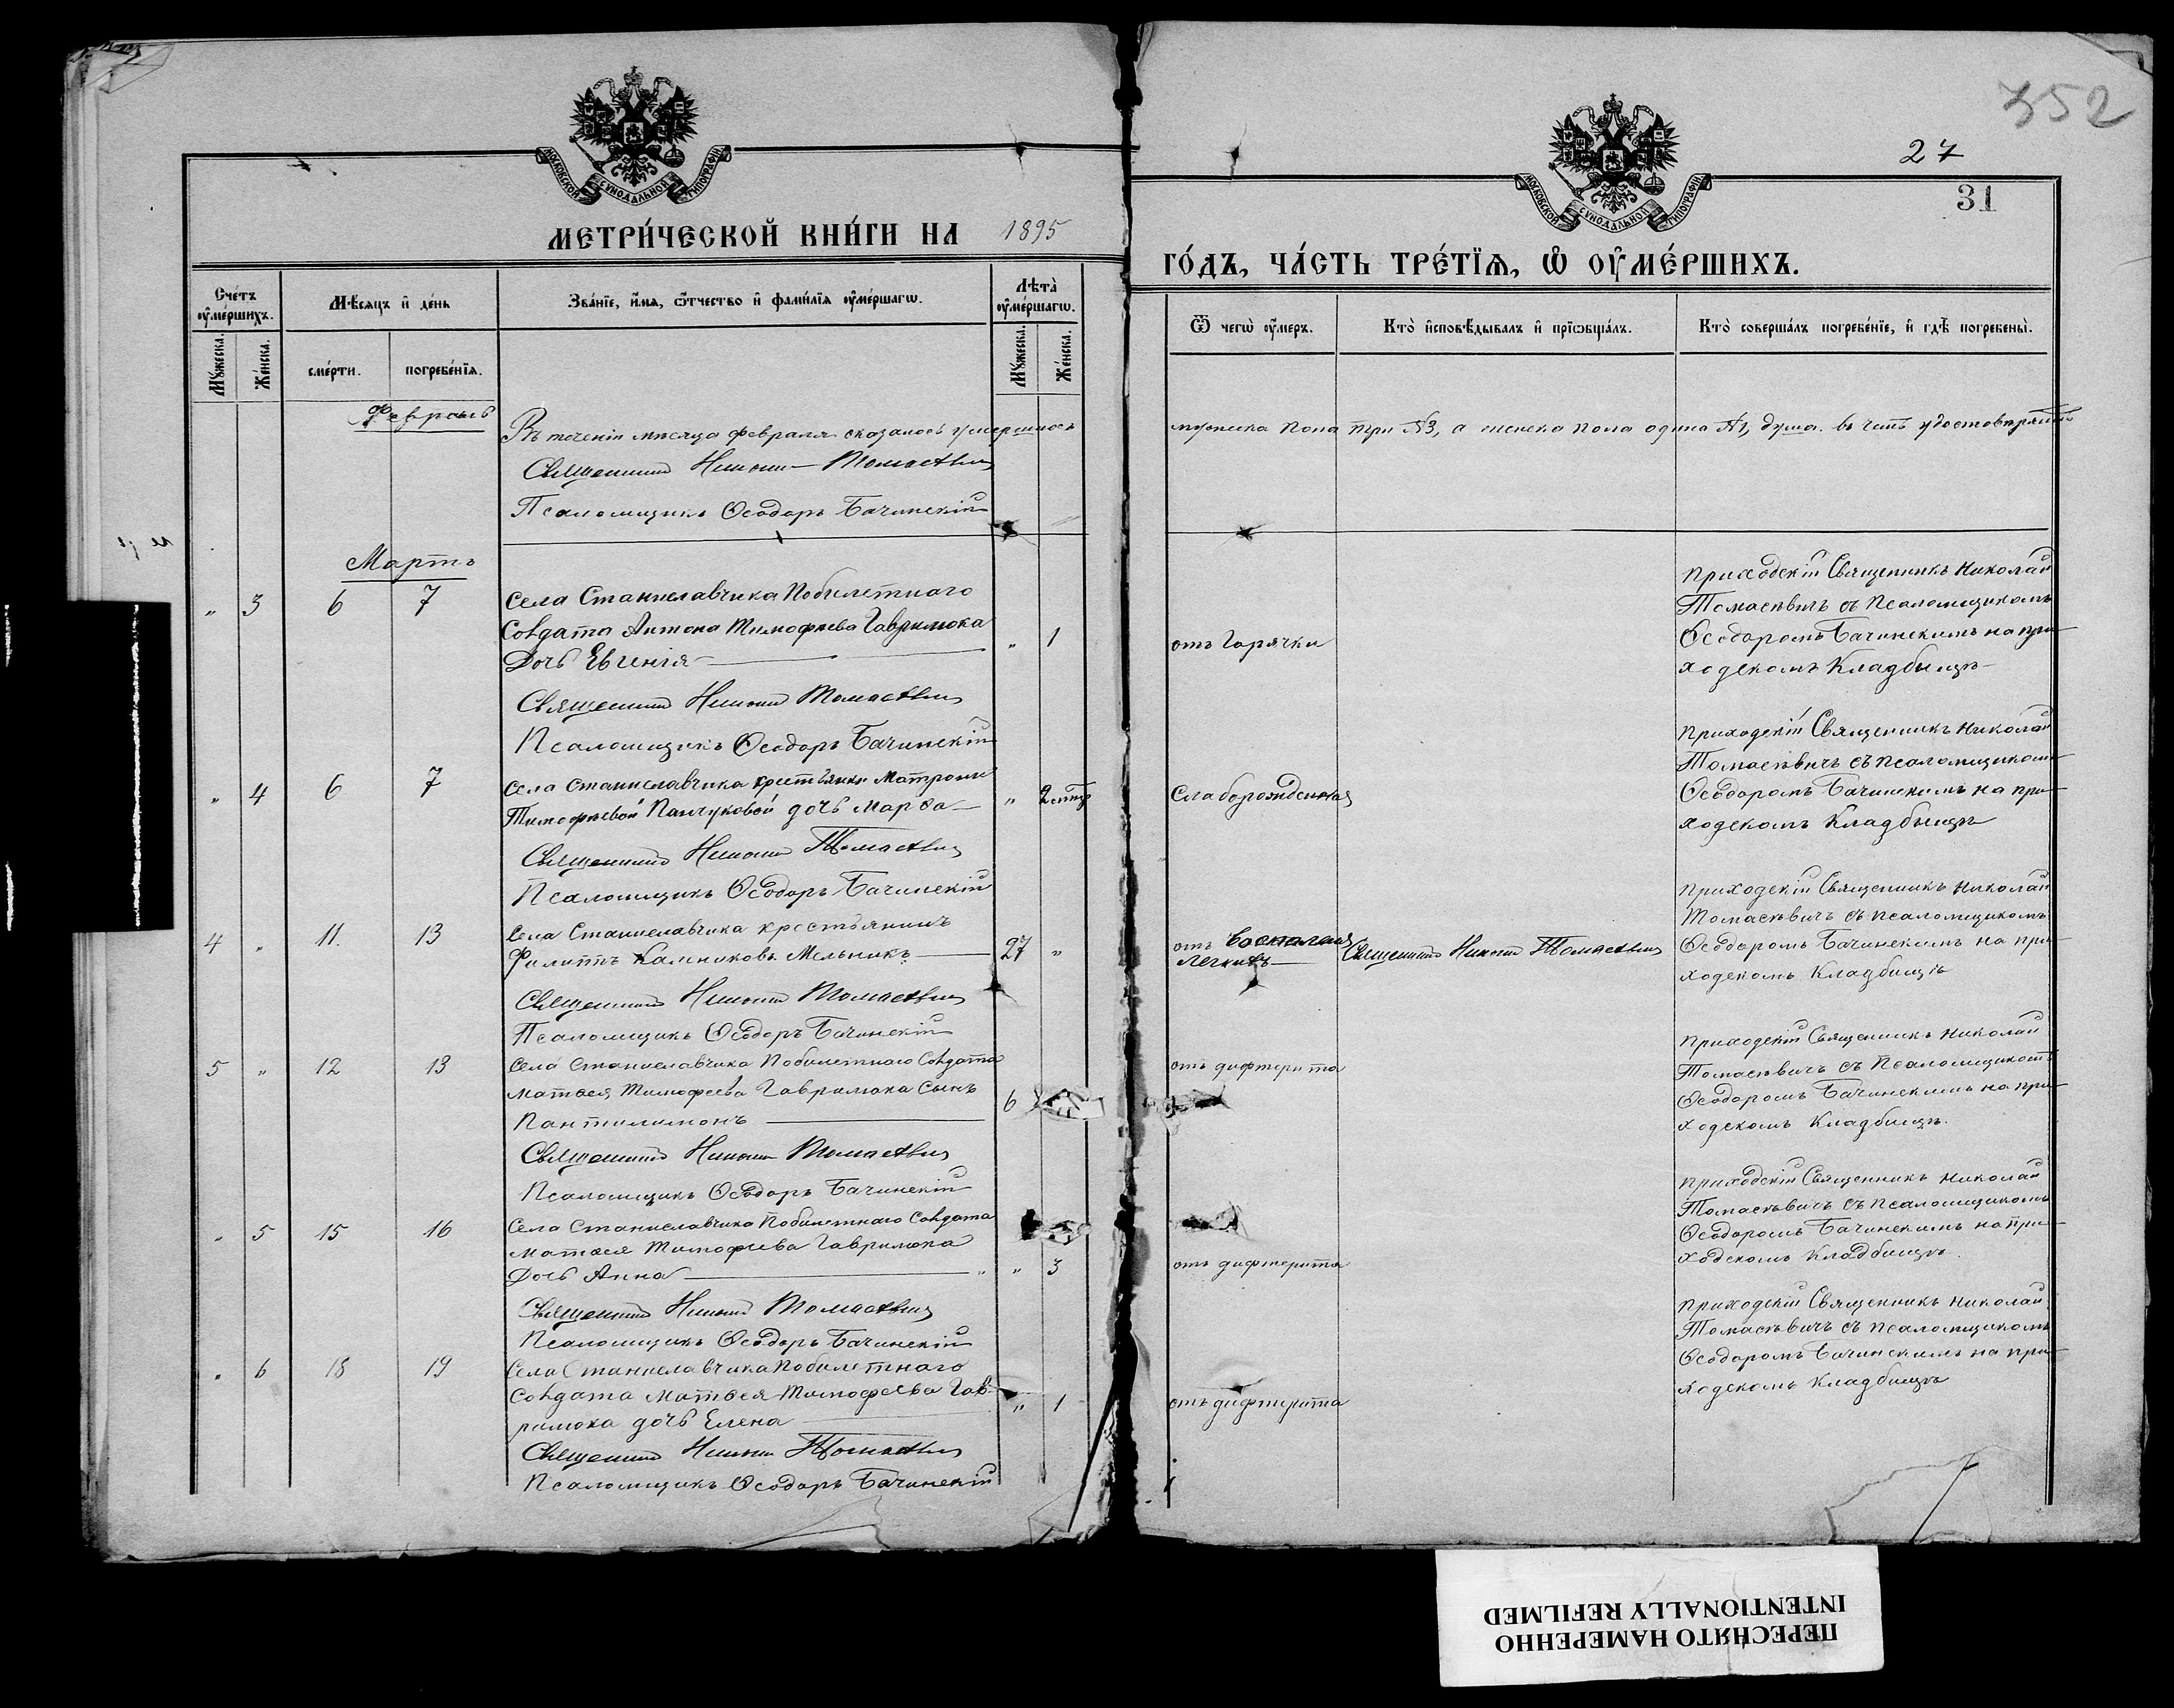 352
27
31
МОСКОВСКОЙ СУНОДАЛЬНОЙ ТИПОГРАФІИ
МОСКОВСКОЙ СУНОДАЛЬНОЙ ТИПОГРАФІИ
МЕТРИ́ЧЕСКОЙ КНИ́ГИ НА 1895 ГО́ДЪ, ЧА́СТЬ ТРЕ́ТІѦ, Ѿ ОУ҆МЕ́РШИХЪ.
Сче́тъ оу҆ме́ршихъ.
Мꙋ́жеска.
Же́нска.
Мѣ́сѧцъ и҆ де́нь
сме́рти.
погребе́нїѧ.
Зва́нїе, и҆́мѧ, ѻ҆́тчество и҆ фами́лїѧ оу҆ме́ршагѡ.
Лѣ́та оу҆ме́ршагѡ.
Мꙋ́жеска.
Же́нска.
Ѿ чегѡ̀ оу҆́меръ.
Кто̀ и҆сповѣ́дывалъ и҆ прїѡбща́лъ.
Кто̀ соверша́лъ погребе́нїе, и҆ гдѣ̀ погребены̀.
Февраль
Въ теченіи мѣсяца февраля оказалось умершихъ мужеска пола три №3, а женска пола одна №1, душа. въ чемъ удостовѣряемъ
Священникъ Николай Томасѣвич
Псаломщикъ Ѳеодоръ Бачинскій
Мартъ
" 3 6 7
Села Станиславчика Побилетнаго
Солдата Антона Тимофѣева Гаврилюка
Дочь Евгенія
" 1
отъ Горячки
приходскій Священникъ Николай
Томасѣвичъ съ Псаломщикомъ
Ѳеодоромъ Бачинскимъ на при-
ходскомъ Кладбищѣ
Священникъ Николай Томасѣвич
Псаломщикъ Ѳеодоръ Бачинскій
" 4 6 7
Села Станиславчика крестьянки Матроны
Тимофѣевой Панчуковой дочь Марѳа
" 2
Слаборожденная
приходскій Священникъ Николай
Томасѣвичъ съ псаломщикомъ
Ѳеодоромъ Бачинскимъ на при-
ходскомъ Кладбищѣ
Священникъ Николай Томасѣвич
Псаломщикъ Ѳеодоръ Бачинскій
4 " 11. 13
Села Станиславчика крестьянинъ
Филиппъ Калниковъ Мельникъ
27 "
отъ воспаленія
легкихъ
Священникъ Николай Томасѣвич
приходскій Священникъ Николай
Томасѣвичъ съ псаломщикомъ
Ѳеодоромъ Бачинскимъ на при-
ходскомъ Кладбищѣ
Священникъ Николай Томасѣвич
Псаломщикъ Ѳеодоръ Бачинскій
5 " 12 13
Села Станиславчика Побилетнаго Солдата
Матѳея Тимофеева Гаврилюка Сынъ
Пантилимонъ
6
отъ дифтерита
приходскій Священникъ Николай
Томасѣвичъ съ Псаломщикомъ
Ѳеодоромъ Бачинскимъ на при-
ходскомъ Кладбищѣ.
Священникъ Николай Томасѣвич
Псаломщикъ Ѳеодоръ Бачинскій
" 5 15 16
Села Станиславчика Побилетнаго Солдата
Матѳея Тимофѣева Гаврилюка
Дочь Анна
" 3
отъ дифтерита
приходскій Священникъ Николай
Томасѣвичъ съ Псаломщикомъ
Ѳеодоромъ Бачинскимъ на при-
ходскомъ Кладбищѣ.
Священникъ Николай Томасѣвич
Псаломщикъ Ѳеодоръ Бачинскій
" 6 18 19
Села Станиславчика Побилетнаго
Солдата Матѳея Тимофеева Гав-
рилюка дочь Елена
" 1
отъ дифтерита
приходскій Священникъ Николай
Томасѣвичъ съ псаломщикомъ
Ѳеодоромъ Бачинскимъ на при-
ходскомъ Кладбищѣ
Священникъ Николай Томасѣвич
Псаломщикъ Ѳеодоръ Бачинскій
ПЕРЕСНЯТО НАМЕРЕННО
INTENTIONALLY REFILMED